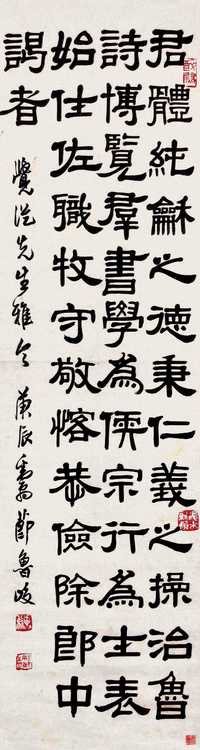 君體純龢之德秉仁義之操治魯
詩博覽羣書學為儒宗行為士表
始仕佐職牧守敬恪恭儉除郎中
謁者
先生雅令 庚辰